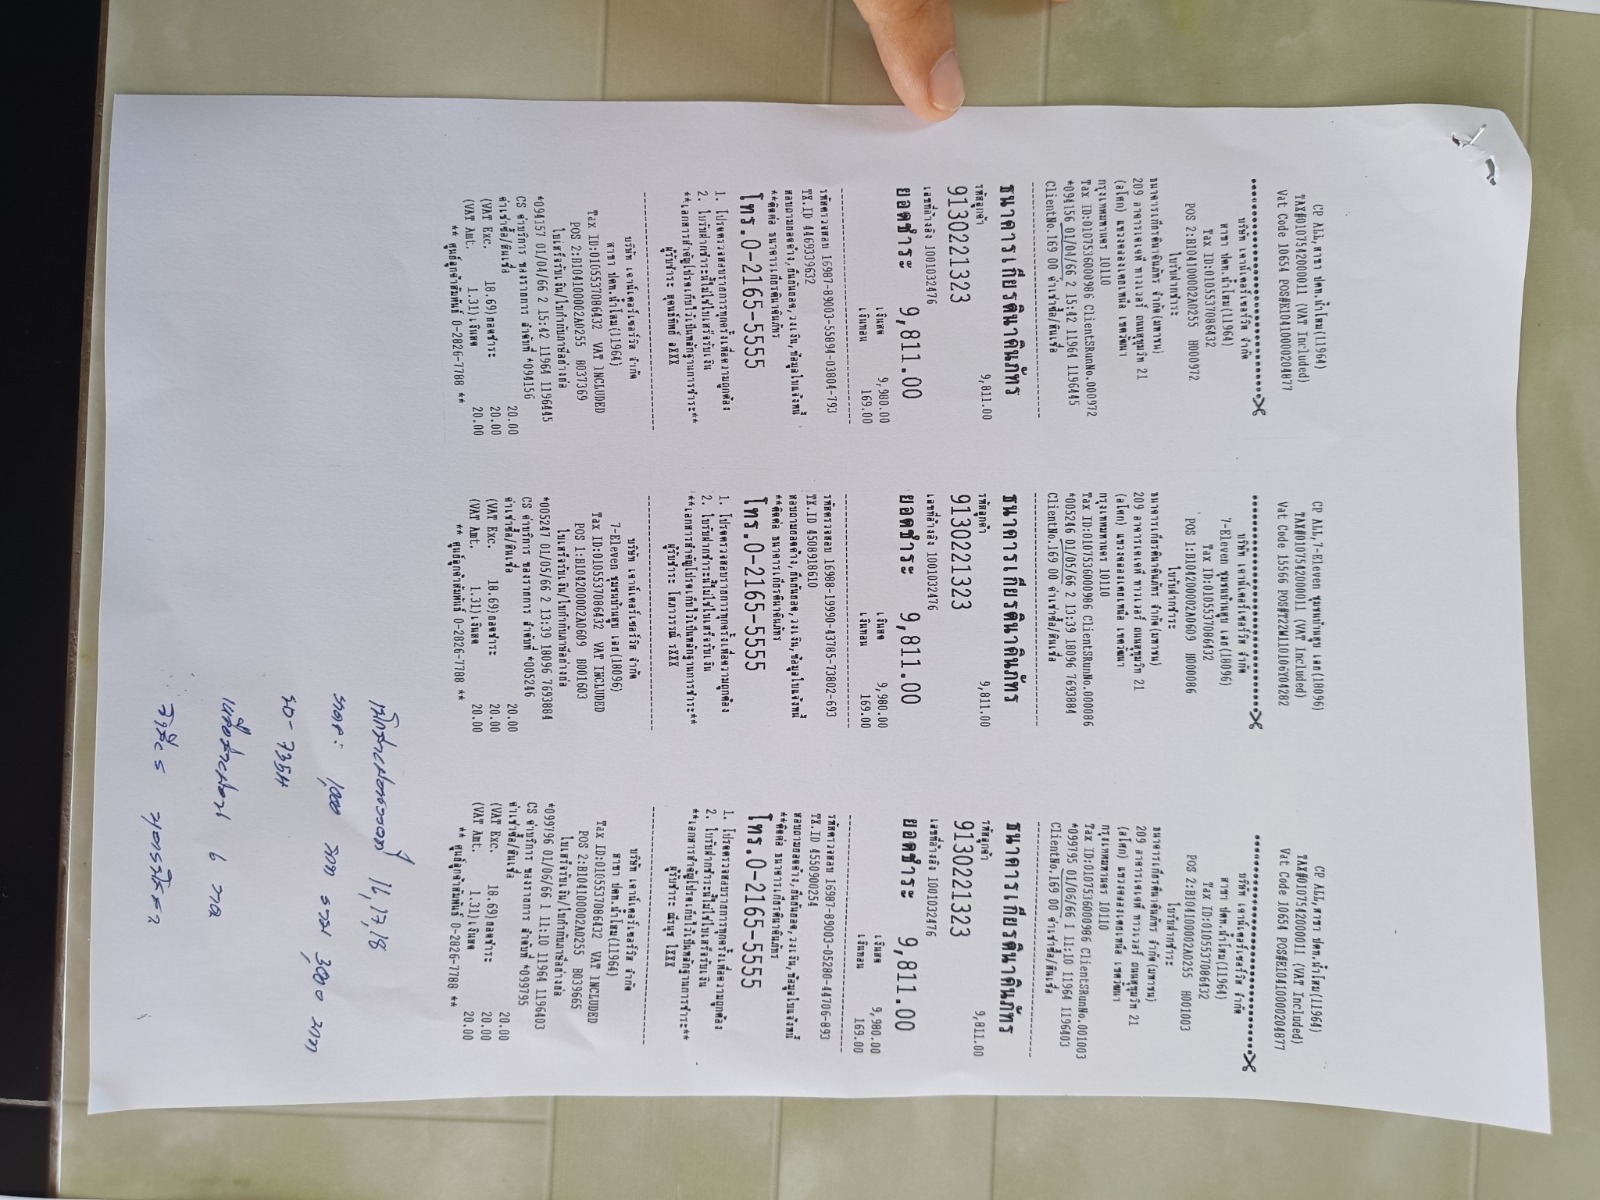 CP ALL,สาขา ปตท.น้ำโสม(11964)
TAX#0107542000011 (VAT Included)
Vat Code 10654 POS#E10410000204877
บริษัท เคาน์เตอร์เซอร์วิส จำกัด
สาขา ปตท.น้ำโสม(11964)
Tax ID:0105537086432
POS 2:B104100002A0255 H000972
ใบรับฝากชำระ
ธนาคารเกียรตินาคินภัทร จำกัด(มหาชน)
209 อาคารเคเคพี ทาวเวอร์ ถนนสุขุมวิท 21
(อโศก) แขวงคลองเตยเหนือ เขตวัฒนา
กรุงเทพมหานคร 10110
Tax ID:0107536000986 ClientSRunNo.000972
*094156 01/04/66 2 15:42 11964 1196445
ClientNo.169 00 ค่าเช่าซื้อ/สินเชื่อ
ธนาคารเกียรตินาคินภัทร
9,811.00
รหัสลูกค้า
9130221323
เลขที่อ้างอิง 1001032476
ยอดชำระ 9,811.00
เงินสด 9,980.00
เงินทอน 169.00
รหัสตรวจสอบ 16987-89003-55894-03804-793
TX.ID 4469339632
สอบถามยอดค้าง,คืนยืนยอด,วงเงิน,ข้อมูลใบแจ้งหนี้
**ติดต่อ ธนาคารเกียรตินาคินภัทร
โทร.0-2165-5555
1. โปรดตรวจสอบรายการทุกครั้งเพื่อความถูกต้อง
2. ใบรับฝากชำระนี้ไม่ใช่ใบเสร็จรับเงิน
**เอกสารสำคัญโปรดเก็บไว้เป็นหลักฐานการชำระ**
บริษัท เคาน์เตอร์เซอร์วิส จำกัด
สาขา ปตท.น้ำโสม(11964)
Tax ID:0105537086432 VAT INCLUDED
POS 2:B104100002A0255 B037369
ใบเสร็จรับเงิน/ใบกำกับภาษีอย่างย่อ
*094157 01/04/66 2 15:42 11964 1196445
CS ค่าบริการ ของรายการ ลำดับที่ *094156
ค่าเช่าซื้อ/สินเชื่อ 20.00
(VAT Exc. 18.69)ยอดชำระ 20.00
(VAT Amt. 1.31)เงินสด 20.00
** ศูนย์ลูกค้าสัมพันธ์ 0-2826-7788 **
CP ALL, 7-Eleven ชุมชนบ้านสูบ เลย(18096)
TAX#0107542000011 (VAT Included)
Vat Code 15566 POS#T22M110106Y04282
บริษัท เคาน์เตอร์เซอร์วิส จำกัด
7-Eleven ชุมชนบ้านสูบ เลย(18096)
Tax ID:0105537086432
POS 1:B104200002A0609 H000086
ใบรับฝากชำระ
ธนาคารเกียรตินาคินภัทร จำกัด(มหาชน)
209 อาคารเคเคพี ทาวเวอร์ ถนนสุขุมวิท 21
(อโศก) แขวงคลองเตยเหนือ เขตวัฒนา
กรุงเทพมหานคร 10110
Tax ID:0107536000986 ClientSRunNo.000086
*005246 01/05/66 2 13:39 18096 7693884
ClientNo.169 00 ค่าเช่าซื้อ/สินเชื่อ
ธนาคารเกียรตินาคินภัทร
9,811.00
รหัสลูกค้า
9130221323
เลขที่อ้างอิง 1001032476
ยอดชำระ 9,811.00
เงินสด 9,980.00
เงินทอน 169.00
รหัสตรวจสอบ 16988-19990-43785-73802-693
TX.ID 4508918610
สอบถามยอดค้าง,คืนยืนยอด,วงเงิน,ข้อมูลใบแจ้งหนี้
**ติดต่อ ธนาคารเกียรตินาคินภัทร
โทร.0-2165-5555
1. โปรดตรวจสอบรายการทุกครั้งเพื่อความถูกต้อง
2. ใบรับฝากชำระนี้ไม่ใช่ใบเสร็จรับเงิน
**เอกสารสำคัญโปรดเก็บไว้เป็นหลักฐานการชำระ**
ผู้รับชำระ โสภาวรรณ์ รXXX
บริษัท เคาน์เตอร์เซอร์วิส จำกัด
7-Eleven ชุมชนบ้านสูบ เลย(18096)
Tax ID:0105537086432 VAT INCLUDED
POS 1:B104200002A0609 B001603
ใบเสร็จรับเงิน/ใบกำกับภาษีอย่างย่อ
*005247 01/05/66 2 13:39 18096 7693884
CS ค่าบริการ ของรายการ ลำดับที่ *005246
ค่าเช่าซื้อ/สินเชื่อ 20.00
(VAT Exc. 18.69)ยอดชำระ 20.00
(VAT Amt. 1.31)เงินสด 20.00
** ศูนย์ลูกค้าสัมพันธ์ 0-2826-7788 **
CP ALL,สาขา ปตท.น้ำโสม(11964)
TAX#0107542000011 (VAT Included)
Vat Code 10654 POS#E10410000204877
บริษัท เคาน์เตอร์เซอร์วิส จำกัด
สาขา ปตท.น้ำโสม(11964)
Tax ID:0105537086432
POS 2:B104100002A0255 H001003
ใบรับฝากชำระ
ธนาคารเกียรตินาคินภัทร จำกัด(มหาชน)
209 อาคารเคเคพี ทาวเวอร์ ถนนสุขุมวิท 21
(อโศก) แขวงคลองเตยเหนือ เขตวัฒนา
กรุงเทพมหานคร 10110
Tax ID:0107536000986 ClientSRunNo.001003
*099795 01/06/66 1 11:10 11964 1196403
ClientNo.169 00 ค่าเช่าซื้อ/สินเชื่อ
ธนาคารเกียรตินาคินภัทร
9,811.00
รหัสลูกค้า
9130221323
เลขที่อ้างอิง 1001032476
ยอดชำระ 9,811.00
เงินสด 9,980.00
เงินทอน 169.00
รหัสตรวจสอบ 16987-89003-05280-44706-893
TX.ID 4550900254
สอบถามยอดค้าง,คืนยืนยอด,วงเงิน,ข้อมูลใบแจ้งหนี้
**ติดต่อ ธนาคารเกียรตินาคินภัทร
โทร.0-2165-5555
1. โปรดตรวจสอบรายการทุกครั้งเพื่อความถูกต้อง
2. ใบรับฝากชำระนี้ไม่ใช่ใบเสร็จรับเงิน
**เอกสารสำคัญโปรดเก็บไว้เป็นหลักฐานการชำระ**
บริษัท เคาน์เตอร์เซอร์วิส จำกัด
สาขา ปตท.น้ำโสม(11964)
Tax ID:0105537086432 VAT INCLUDED
POS 2:B104100002A0255 B039665
ใบเสร็จรับเงิน/ใบกำกับภาษีอย่างย่อ
*099796 01/06/66 1 11:10 11964 1196403
CS ค่าบริการ ของรายการ ลำดับที่ *099795
ค่าเช่าซื้อ/สินเชื่อ 20.00
(VAT Exc. 18.69)ยอดชำระ 20.00
(VAT Amt. 1.31)เงินสด 20.00
** ศูนย์ลูกค้าสัมพันธ์ 0-2826-7788 **
16,17,18
งวดละ 1,000 บาท รวม 3,000 บาท
6 งวด